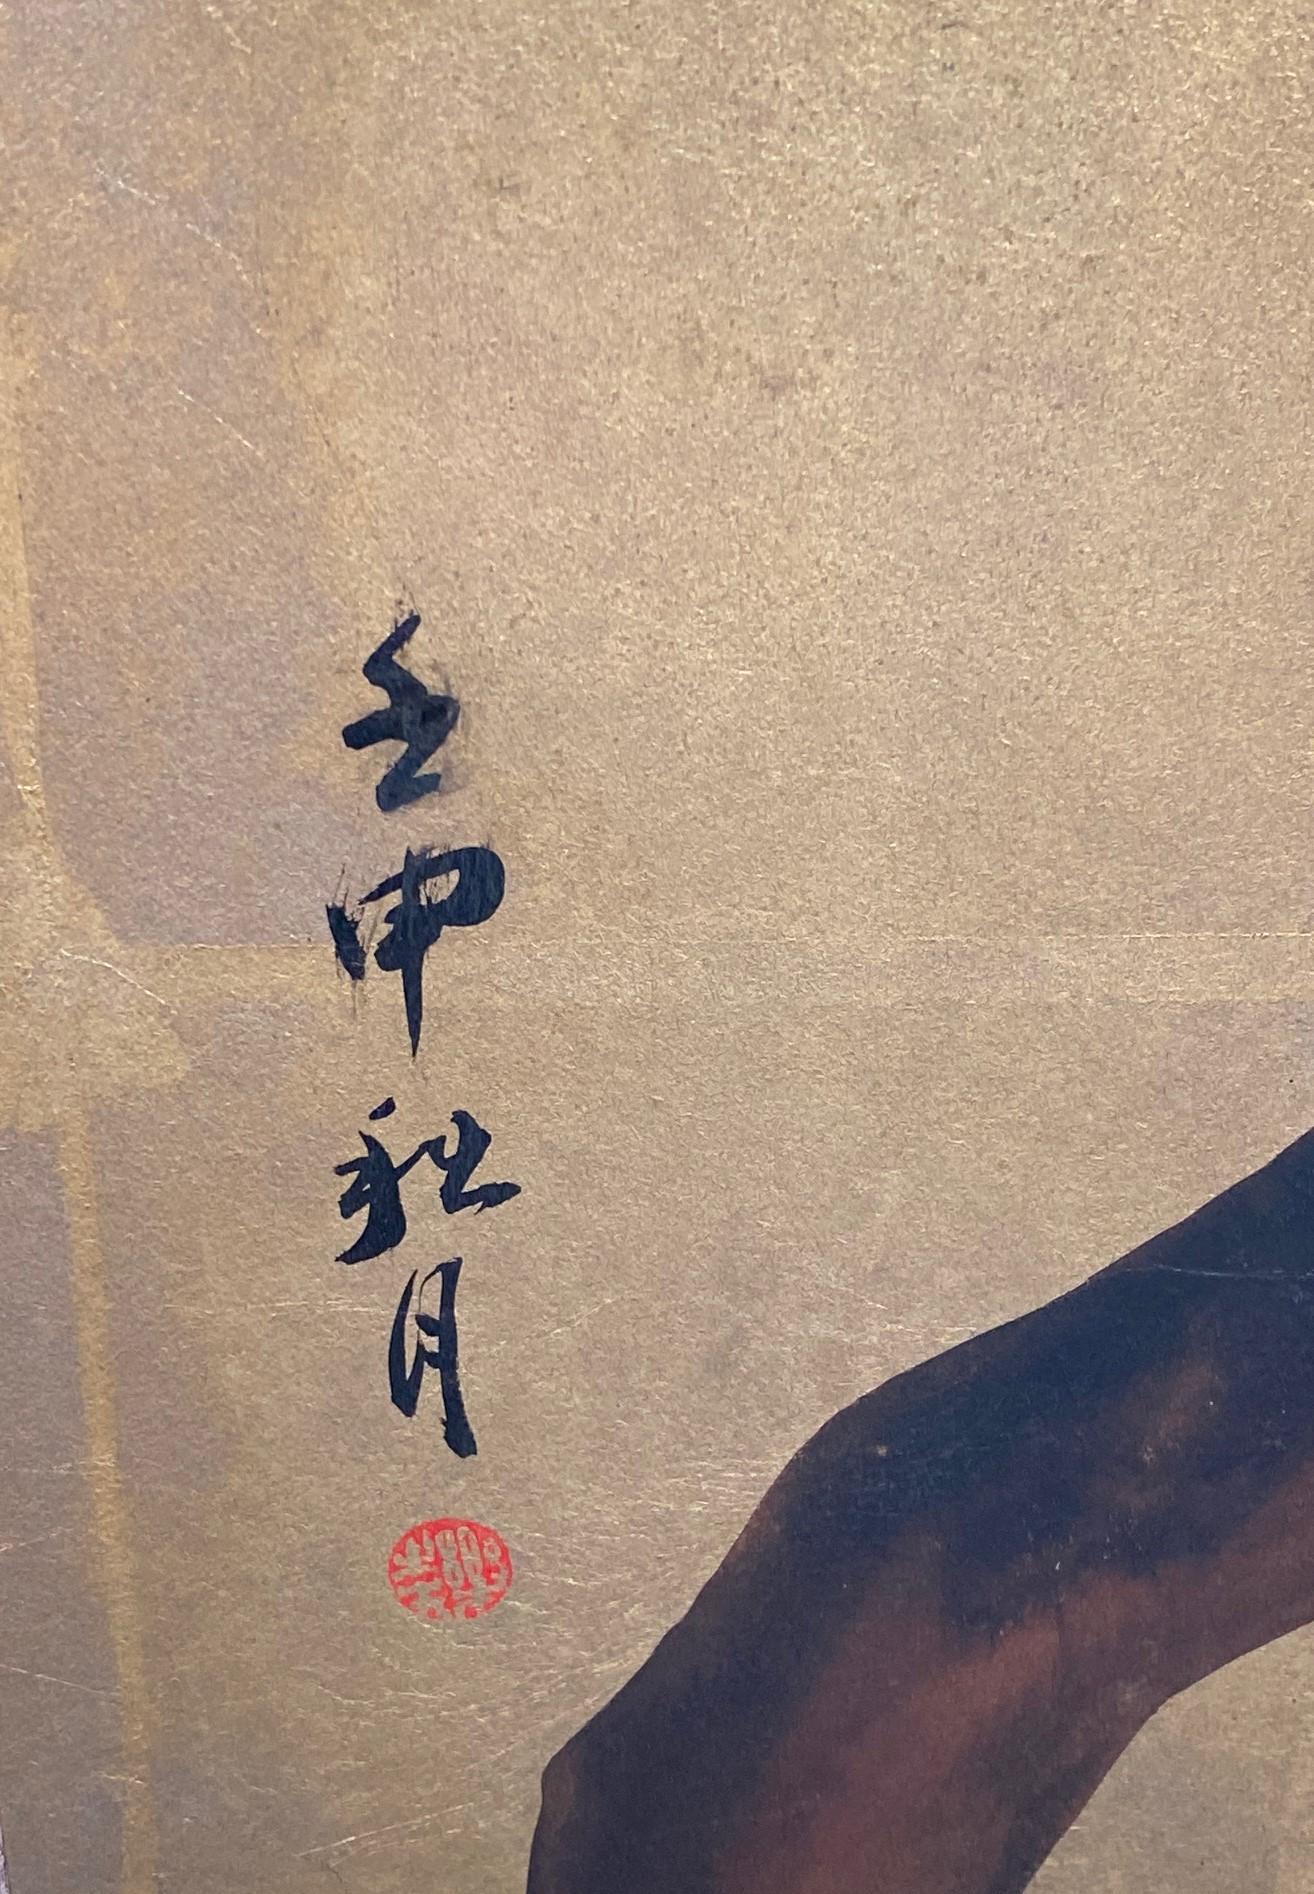 壬申秋月